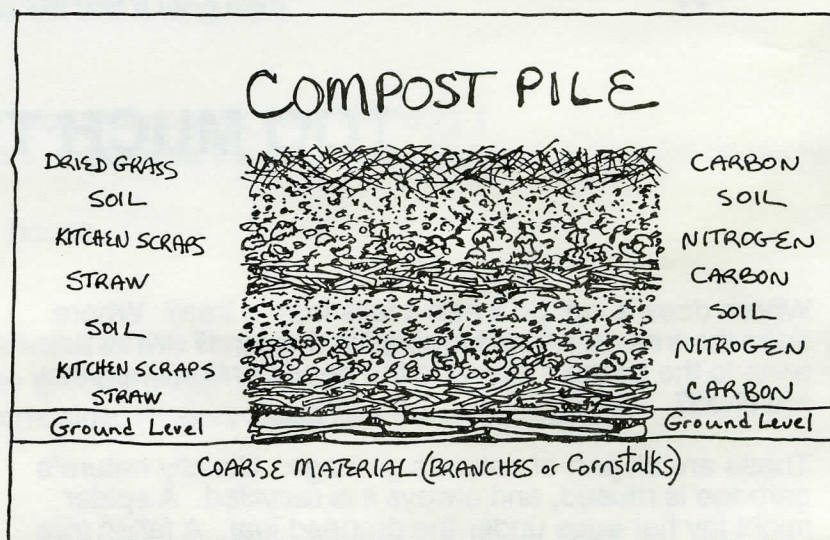 COMPOST PILE
DRIED GRASS
SOIL
KITCHEN SCRAPS
STRAW
SOIL
KITCHEN SCRAPS
STRAW
Ground Level
CARBON
SOIL
NITROGEN
CARBON
SOIL
NITROGEN
CARBON
Ground Level
COARSE MATERIAL (BRANCHES or Cornstalks)